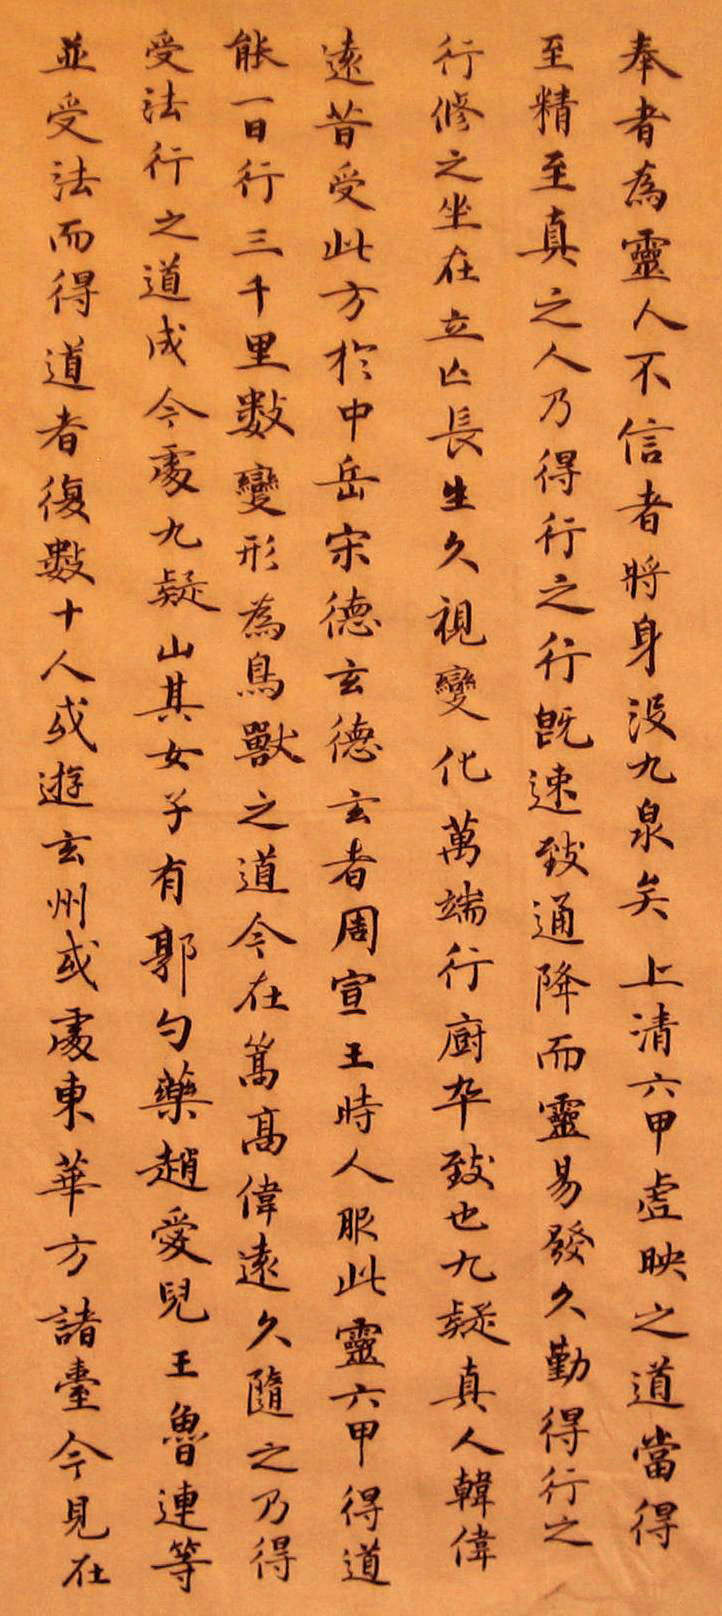 奉者為靈人不信者將身沒九泉矣上清六甲虛映之道當得
至精至真之人乃得行之行既速致通降而靈易發久勤得行之
行修之坐在立亾長生久視變化萬端行廚卒致也九疑真人韓偉
遠昔受此方於中岳宋德玄德玄者周宣王時人服此靈六甲得道
能一日行三千里數變形為鳥獸之道今在篙高偉遠久隨之乃得
受法行之道成今處九疑山其女子有郭勺藥趙愛兒王魯連等
並受法而得道者復數十人或遊玄州或處東華方諸臺今見在